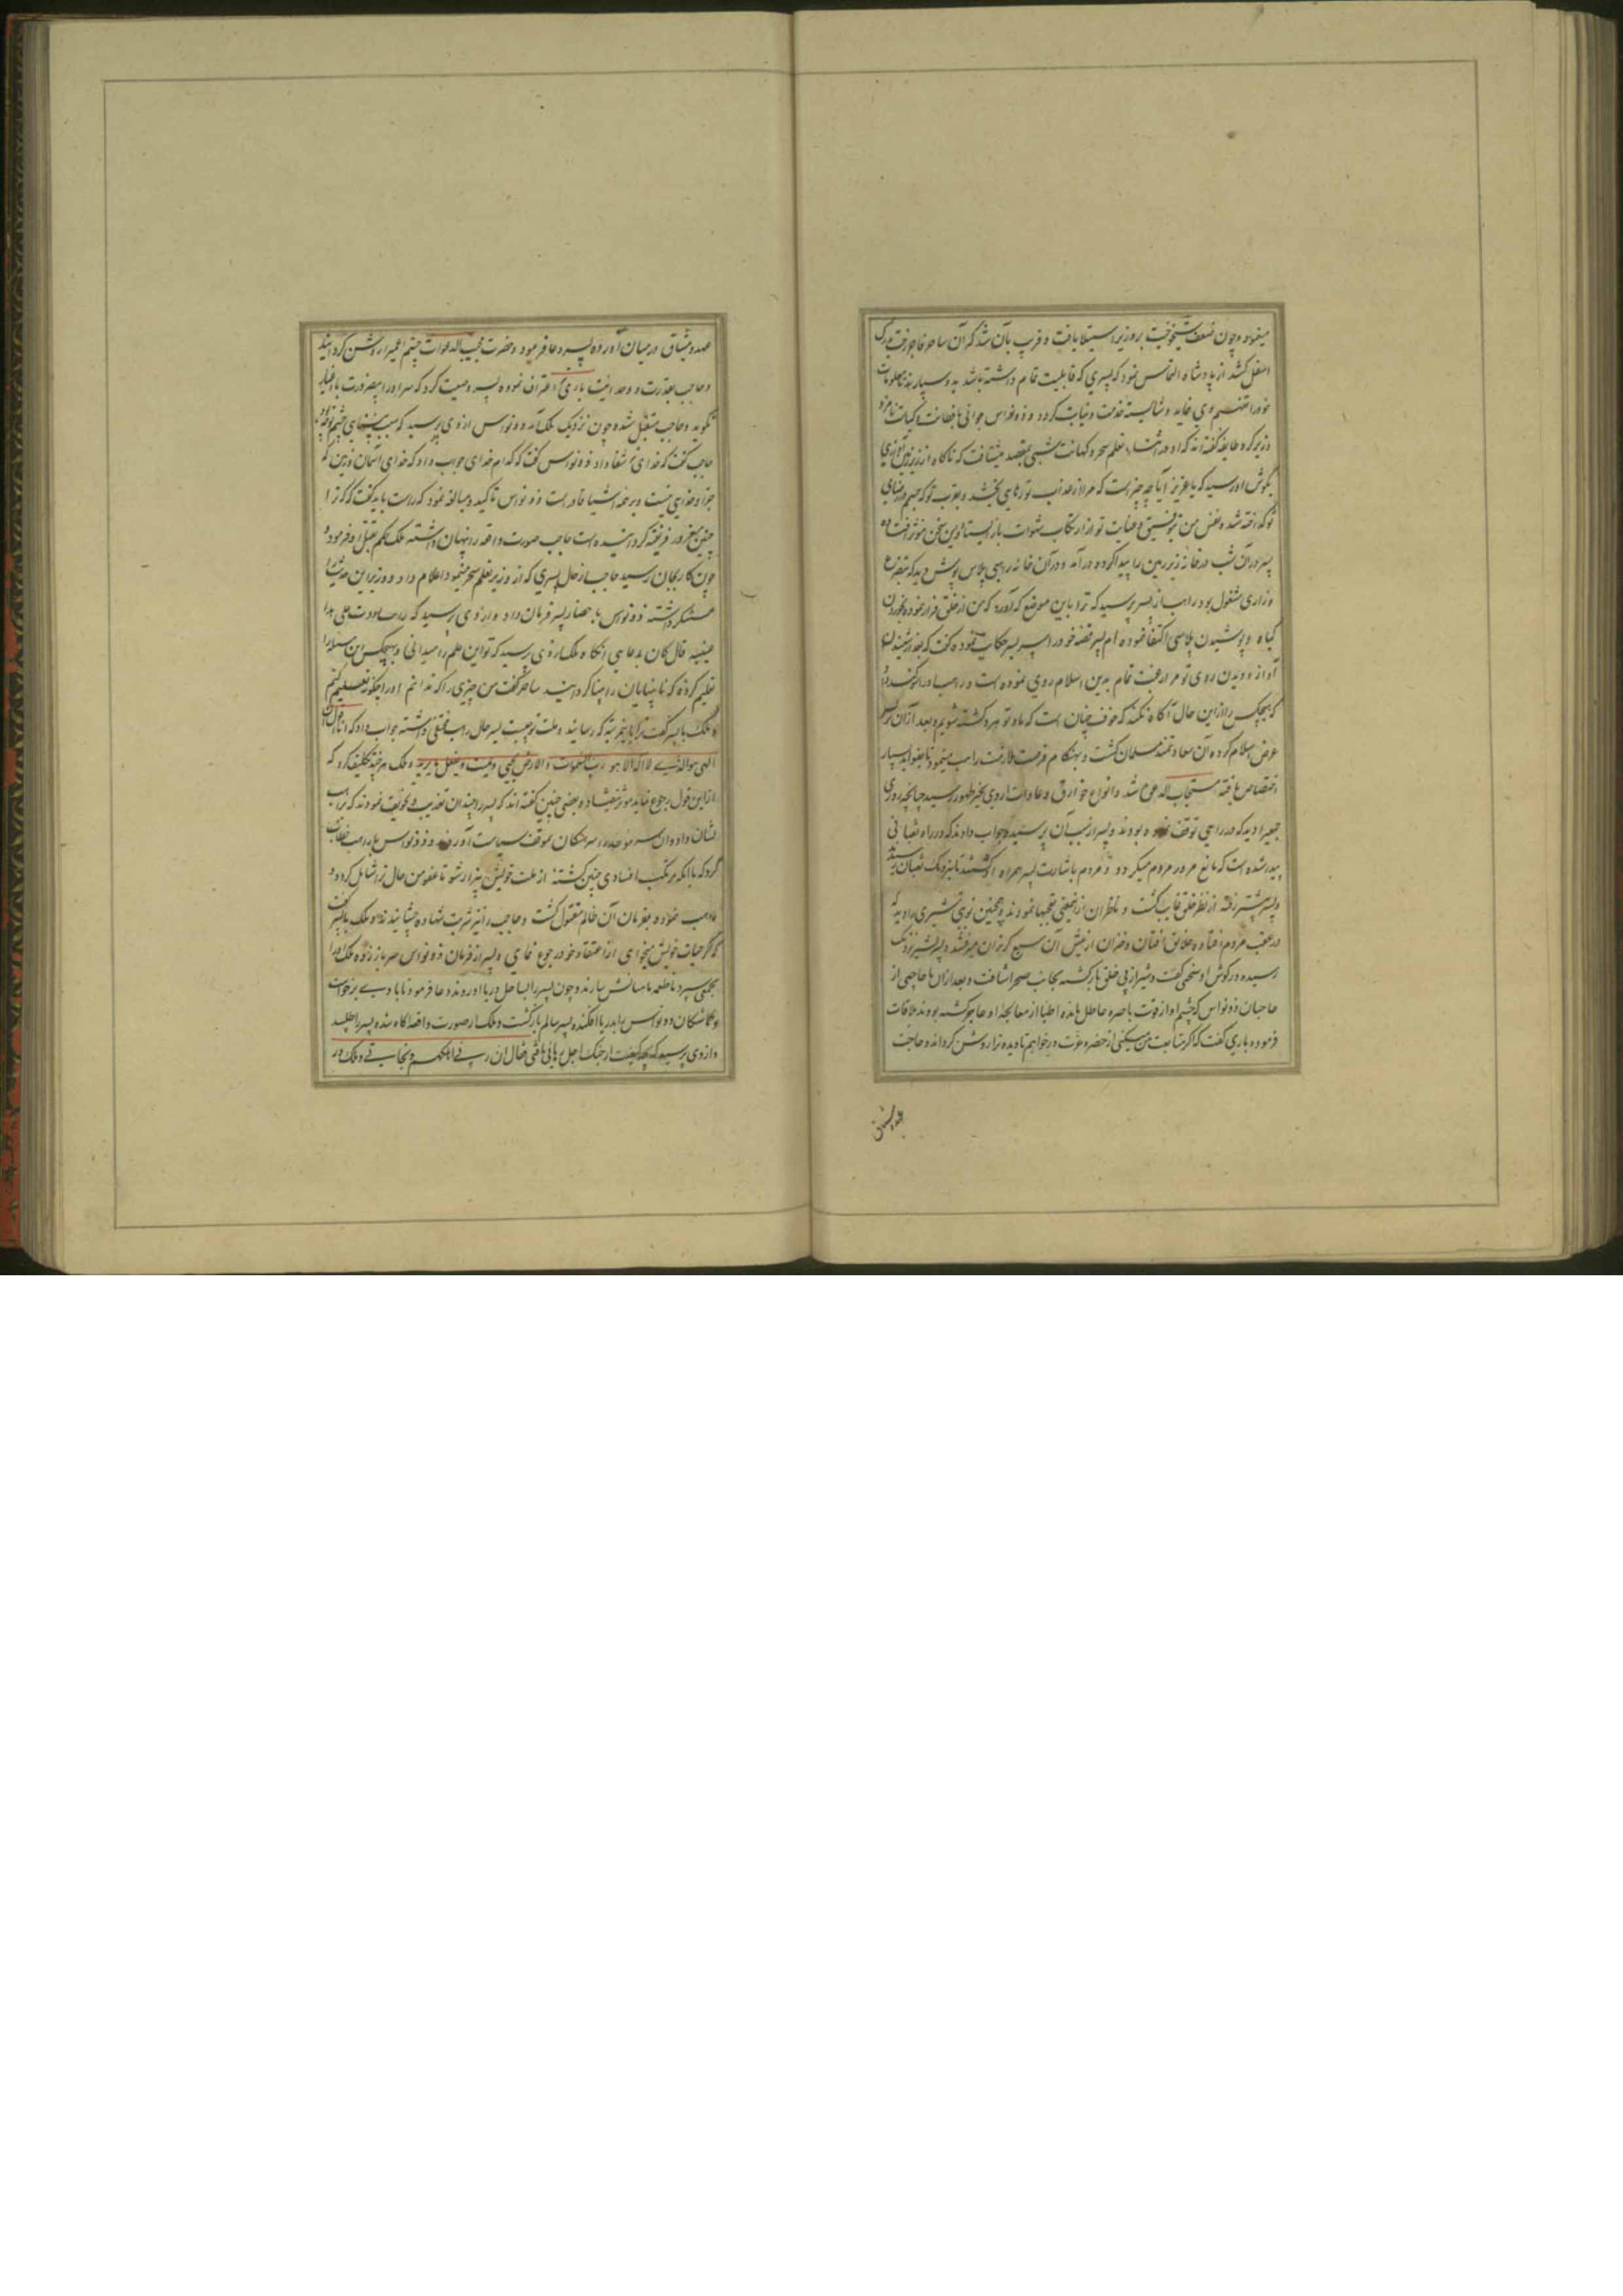 مینمود و چون ضعف شیخوخیت بر وزیر استیلا یافت و قریب بآن شد که آن ساحر فاجر رخت بدرک
اسفل کشد از پادشاه التماس نمود که پسری که قابلیت تمام داشته باشد بدو سپارند تا معلومات
خود را تفهیم وی نماید و شایسته خدمت و نیابت گردد و ذونواس جوانی با فطانت و کیاست نامزد
وزیر کرد طایفه گفته‌اند که
بگوش او رسید که یا عزیز آیا چه چیز است که مرا از عذاب تو رهایی بخشد و بقرب تو که جسم در رضای
تو گداخته شد و نفس من بتوفیق و عنایت تو از ارتکاب شهوات باز ایستاد و این سخن مؤثر افتاده
پسر در آن شب در خانه زیر زمین را پیدا کرده در آمد و در آن خانه راهبی پلاس پوش دید که بتضرع
و زاری مشغول بود راهب از پسر پرسید که ترا باین موضع که آورد که من از خلق فرار نموده بخوردن
گیاه و پوشیدن پلاسی اکتفا نموده‌ام پسر قصه خود را حکایت نموده گفت که بعد از شنیدن
آواز و دیدن روی تو مرا رغبت تمام بدین اسلام روی نموده است و راهب او را سوگند داد
که هیچکس را ازین حال آگاه نکند که خوف چنان است که ما و تو هر دو کشته شویم و بعد از آن
عرض اسلام کرده آن سعادتمند مسلمان گشت و بهنگام فرصت ملازمت راهب مینمود تا بفواید بسیار
اختصاص یافته مستجاب الدعوة شد و انواع خوارق و عادات از وی بحیز ظهور رسید چنانچه روزی
جمعی را دید که در راهی توقف نموده بودند و پسر از سبب آن پرسیده جواب دادند که در راه ثعبانی
پیدا شده است که مانع مرور مردم میگردد و مردم باشارت پسر همراه او گشتند تا بنزدیک ثعبان رسیدند
و پسر پیشتر رفته از نظر خلق غایب گشت و ناظران ازین معنی تعجبها نمودند و همچنین نوبتی شیری را دید که
در عقب مردم افتاده و خلایق افتان و خیزان از پیش آن سبع گریزان میرفتند و پسر بشیر نزدیک
رسیده در گوش او سخنی گفت و شیر از پی خلق بازگشته بجانب صحرا شتافت و بعد از آن با حاجبی از
حاجبان ذونواس که چشم او از قوت باصره عاطل مانده اطبا از معالجه او عاجز گشته بودند ملاقات
فرموده باری گفت که اگر متابعت من میکنی از حضرت عزت درخواهم تا دیده ترا روشن گرداند و حاجب
عهد و میثاق در میان آورده پسر دعا فرمود و حضرت مجیب الدعوات چشم اعمی را روشن گردانید
و حاجب بقدرت و وحدانیت باری اعتراف نموده پسر وصیت کرد که سر او را بضرورت باغیار
نگوید و حاجب متقبل شده چون نزدیک ملک آمد ذونواس از وی پرسید که سبب بینایی چشم تو چه بود
حاجب گفت که خدای شفا داد ذونواس گفت که کدام خدای جواب داد که خدای آسمان و زمین که
جز او خدایی نیست و بر همه اشیا قادر است ذونواس تاکید و مبالغه نمود که راست باید گفت که که ترا
چنین مغرور و فریفته گردانیده است حاجب صورت واقعه را پنهان داشته ملک بحکم بقتل او فرمود و
چون کار بجان رسید حاجب از حال پسری که از وزیر تعلم سحر مینمود اعلام داد و وزیر این حدیث را
مستنکر داشته ذونواس باحضار پسر فرمان داد و از وی پرسید که
قال کان بدعایی آنگاه ملک از وی پرسید که تو این علم را میدانی و بهیچکس این مسئله را
تعلیم کرده که نابینایان را بینا گردانید ساحر گفت من چیزی را که ندانم او را چگونه تعلیم کنم
و ملک با پسر گفت ترا باین مرتبه که رسانید و ملت تو چیست پسر حال راهب مخفی داشته جواب داد که
الهی هو الذی لا اله الا هو رب السموات و الارض یحیی و یمیت و یفعل ما یرید و ملک هر چند تکلیف کرد که
ازین قول رجوع نماید مؤثر نیفتاد و بعضی چنین گفته‌اند که پسر را چندان تعذیب و تخویف نمودند که براهب
نشان داد و آن سه موحد را سرهنگان بموقف سیاست آورده و ذونواس با راهب خطاب
کرد که با آنکه مرتکب افسادی چنین گشته از ملت خویش بیزار شو تا عفو من حال ترا شامل گردد و
راهب نموده بفرمان آن ظالم مقتول گشت و حاجب را نیز شربت شهادت چشانیدند و ملک با پسر گفت
که اگر حیات خویش میخواهی از اعتقاد خود رجوع نمای و پسر از فرمان ذونواس سر باز زده ملک او را
بجمعی سپرد تا طعمه ماهیانش سازند و چون پسر را بساحل دریا آوردند دعا فرمود تا بادی برخاست
و گماشتگان ذونواس را بدریا افکنده پسر سالم بازگشت و ملک از صورت واقعه آگاه شده پسر را طلبید
و از وی پرسید که بچه کیفیت از چنگ اجل رهایی یافتی فقال ان ربی اهلکهم و نجانی و ملک در